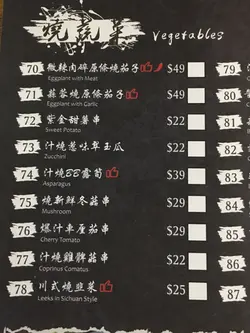 燒蔬菜 Vegetables
70 微辣肉碎原條燒茄子 $49
Eggplant with Meat
71 蒜蓉燒原條茄子 $49
Eggplant with Garlic
72 紫金甜薯串 $22
Sweet Potato
73 汁燒惹味翠玉瓜 $22
Zucchini
74 汁燒BB露筍 $39
Asparagus
75 燒新鮮冬菇串 $29
Mushroom
76 爆汁車厘茄串 $29
Cherry Tomato
77 汁燒雞髀菇串 $22
Coprinus Comatus
78 川式燒韭菜 $25
Leeks in Sichuan Style
79
80
81
82
83
84
85
86
87